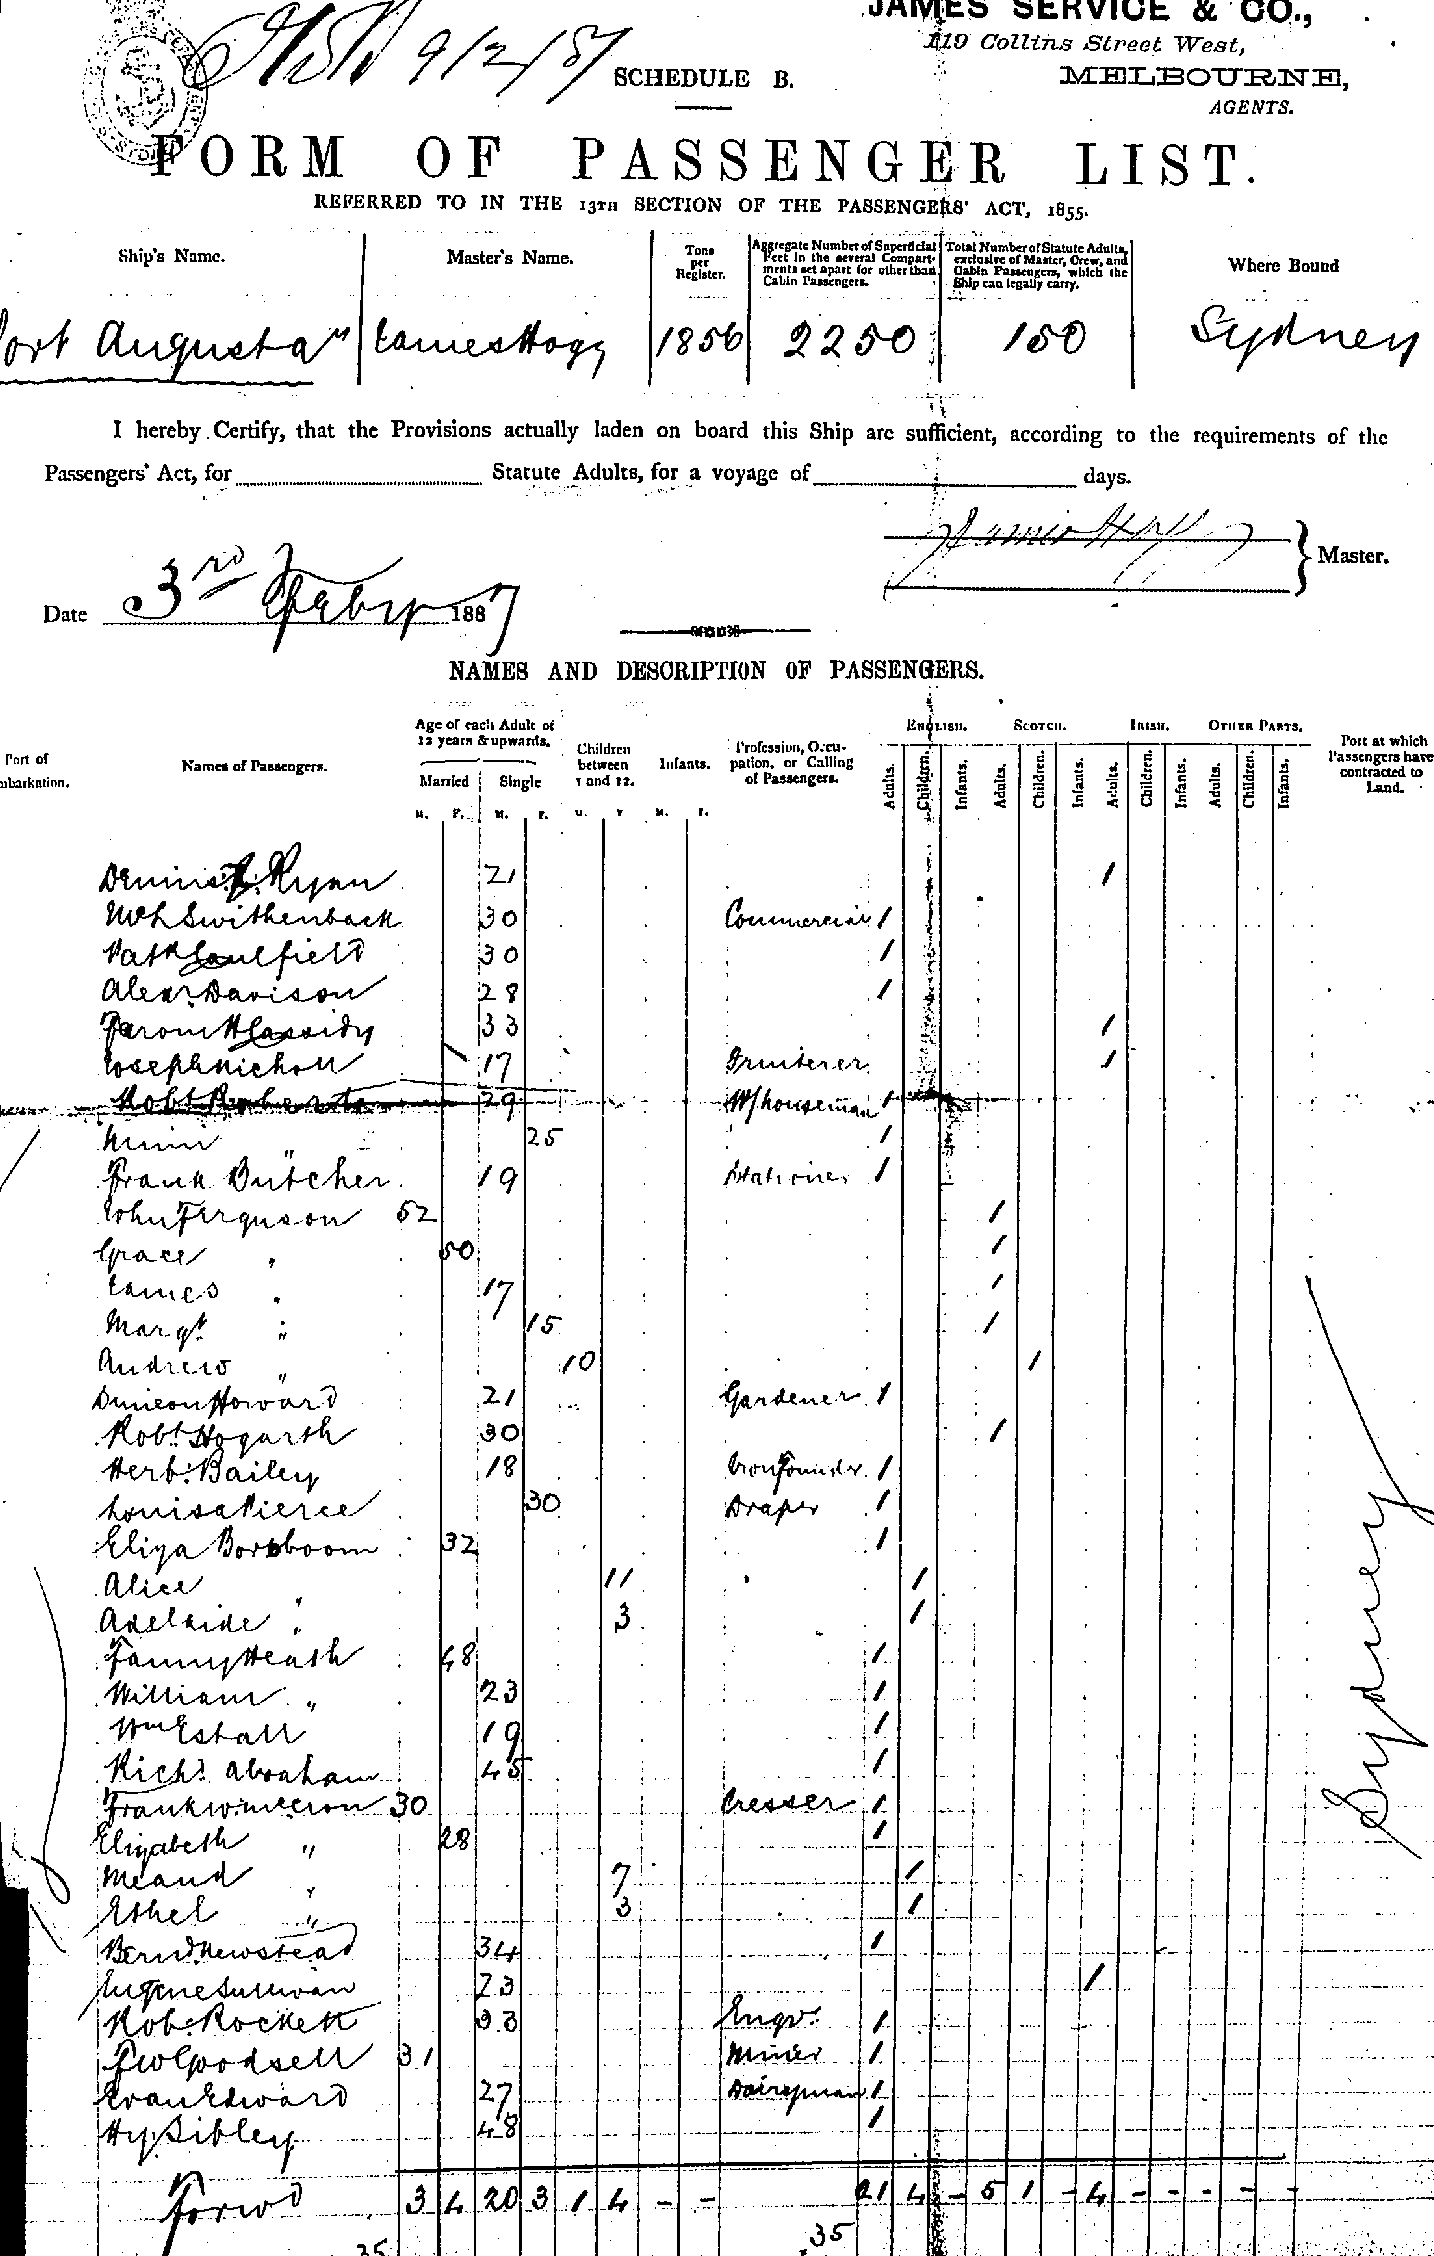 9/2/87
JAMES SERVICE & CO.,
119 Collins Street West,
MELBOURNE,
AGENTS.
SCHEDULE B.
FORM OF PASSENGER LIST.
REFERRED TO IN THE 13TH SECTION OF THE PASSENGERS' ACT, 1855.
Ship's Name. Master's Name. Tons per Register. Aggregate Number of Superficial Feet in the several Compartments set apart for other than Cabin Passengers. Total Number of Statute Adults, exclusive of Master, Crew, and Cabin Passengers, which the Ship can legally carry. Where Bound
Port Augusta James Hogg 1856 2250 150 Sydney
I hereby Certify, that the Provisions actually laden on board this Ship are sufficient, according to the requirements of the
Passengers' Act, for Statute Adults, for a voyage of days.
James Hogg Master.
Date 3rd Feby 1887
NAMES AND DESCRIPTION OF PASSENGERS.
Port of Embarkation. Names of Passengers. Age of each Adult of 12 years & upwards. Married Single Children between 1 and 12. Infants. Profession, Occupation, or Calling of Passengers. ENGLISH. SCOTCH. IRISH. OTHER PARTS. Port at which Passengers have contracted to Land.
M. F. M. F. M. F. M. F. Adults. Children. Infants. Adults. Children. Infants. Adults. Children. Infants. Adults. Children. Infants.
Dennis Ryan 21 1
Swithenback 30 Commercial 1
Caulfield 30 1
Alexr Davison 28 1
Cassidy 33 1
Joseph Nicholl 17 Fruiterer 1
Robt Roberts 29 W/houseman 1
" 25 1
Frank Butcher 19 Stationer 1
John Ferguson 52 1
Grace " 50 1
James " 17 1
Margt " 15 1
Andrew " 10 1
Simeon Howard 21 Gardener 1
Robt Hogarth 30 1
Herbt Bailey 18 Ironfounder 1
Louisa Pierce 30 Draper 1
Eliza Borkboom 32 1
Alice " 11 1
Adelaide " 3 1
Fanny Heath 48 1
William " 23 1
Wm Estall 19 1
Richd Abraham 45 1
Frank 30 1
Elizabeth " 28 1
Meaud " 7 1
Ethel " 3 1
Bernd Newstead 34 1
Eugene Sullivan 23 1
Robt Rockett 33 Engr. 1
F W Goodsell 31 Miner 1
Evan Edward 27 Dairyman 1
Hy. Sibley 48 1
Sydney
Forwd 3 4 20 3 1 4 - - 21 4 - 5 1 - 4 - - - - -
35 35